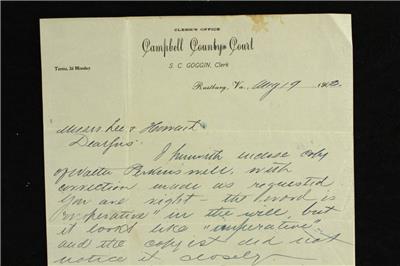 CLERK'S OFFICE
Campbell County Court
S. C. GOGGIN, Clerk
Terms, 2d Monday
Rustburg, Va., Aug 19
Messrs Lee & Howard
Dear Sirs:
I herewith inclose copy
of Walter Perkins will, with
correction made as requested
You are right - the word is
"operative" in the will, but
it looks like "imperative" -
and the copyist did not
notice it closely